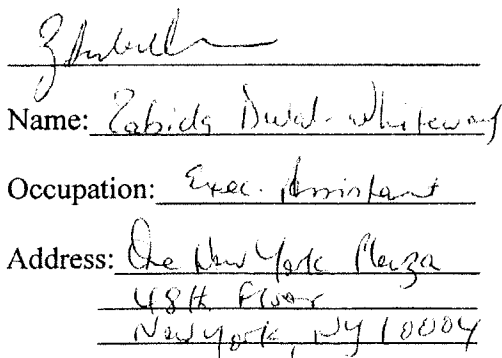 Name: Zabida Diwal-Whiteway
Occupation: Exec. Assistant
Address: One New York Plaza
48th Floor
New York, NY 10004